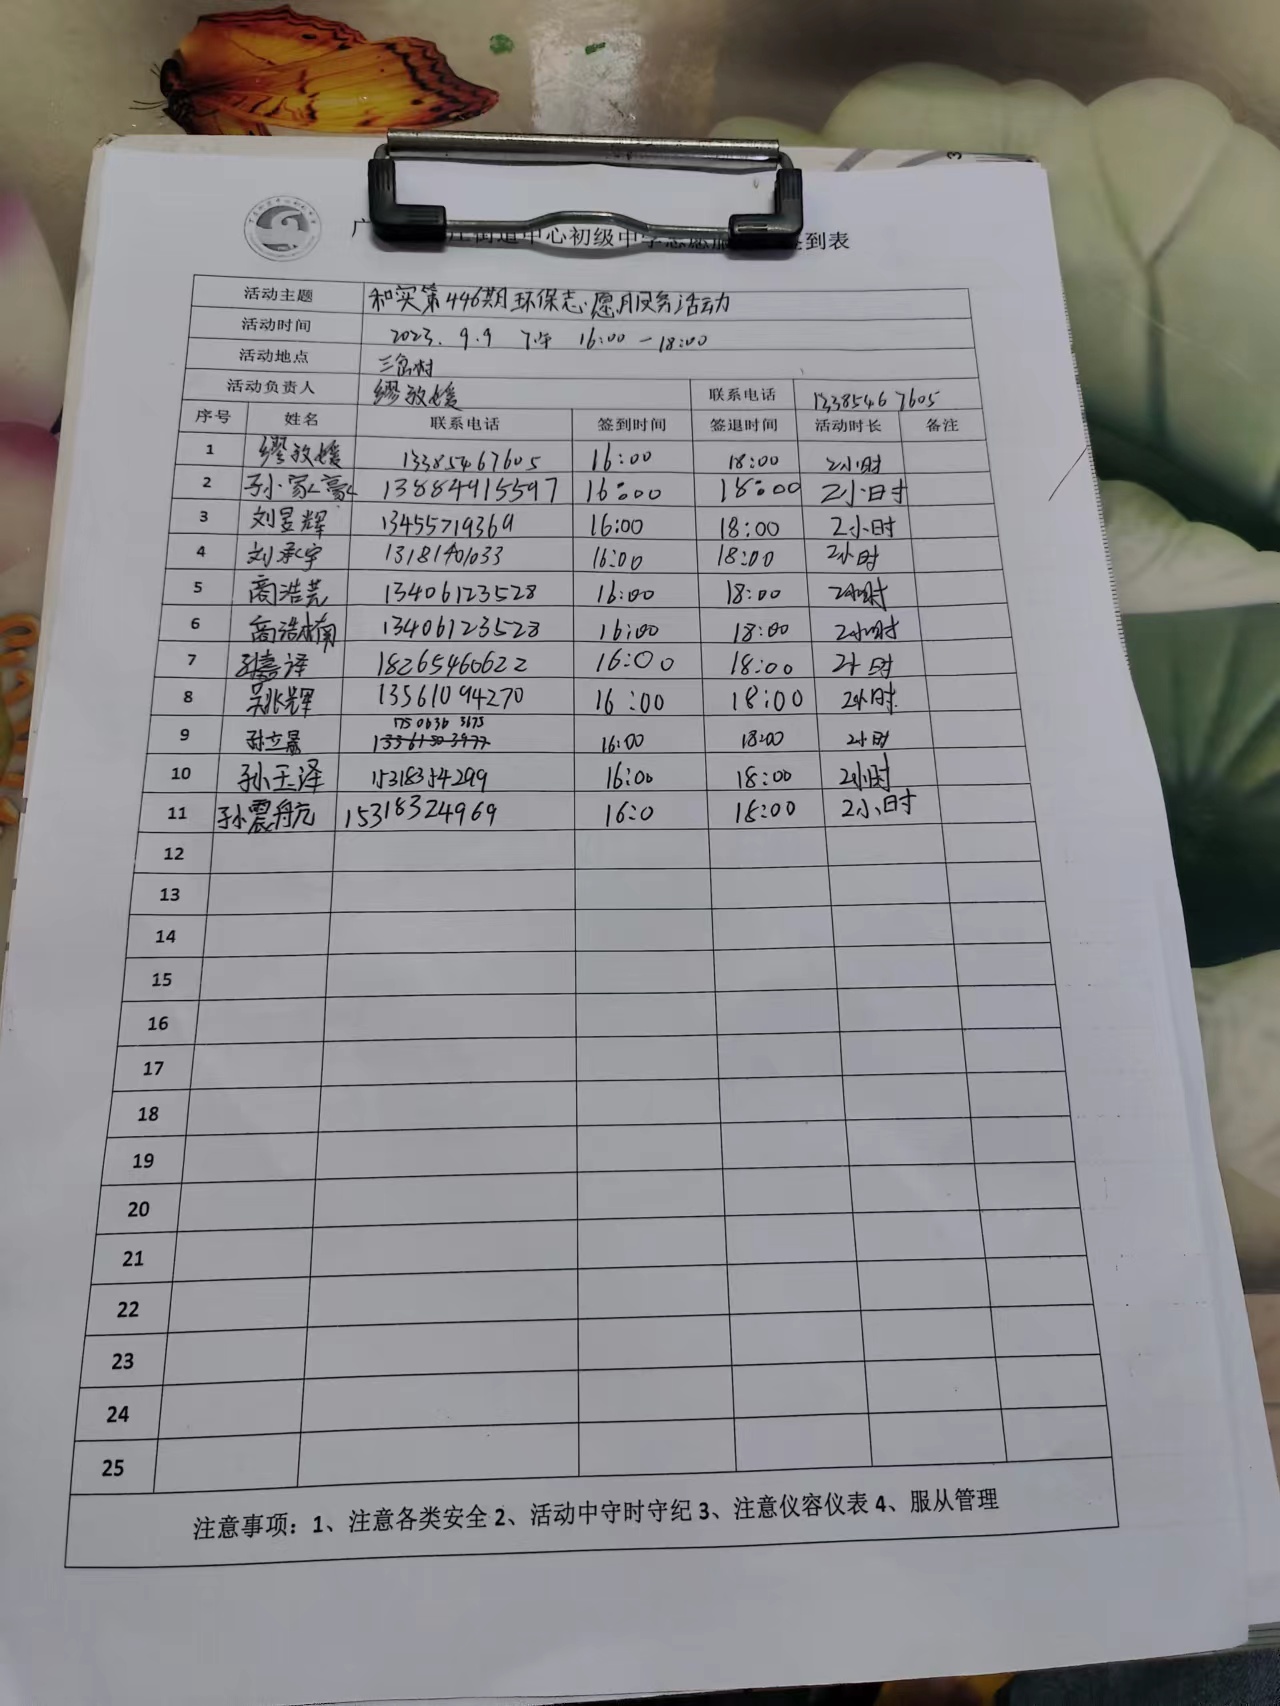 广 庄街道中心初级中学志愿服 签到表
活动主题 和实第446期环保志愿服务活动
活动时间 2023.9.9 下午 16:00-18:00
活动地点 三岔村
活动负责人 缪敏媛 联系电话 13385467605
序号 姓名 联系电话 签到时间 签退时间 活动时长 备注
1 缪敏媛 13385467605 16:00 18:00 2小时
2 孙家豪 13884915597 16:00 18:00 2小时
3 刘昱辉 13455719369 16:00 18:00 2小时
4 刘承宇 16:00 18:00 2小时
5 商浩芫 13406123528 16:00 18:00 2小时
6 商浩楠 13406123528 16:00 18:00 2小时
7 孙嘉译 18265460622 16:00 18:00 2小时
8 吴兆辉 13561094270 16:00 18:00 2小时
9 孙立晟 16:00 18:00 2小时
10 孙玉泽 15318354299 16:00 18:00 2小时
11 孙震航 15318324969 16:0 18:00 2小时
12
13
14
15
16
17
18
19
20
21
22
23
24
25
注意事项：1、注意各类安全 2、活动中守时守纪 3、注意仪容仪表 4、服从管理